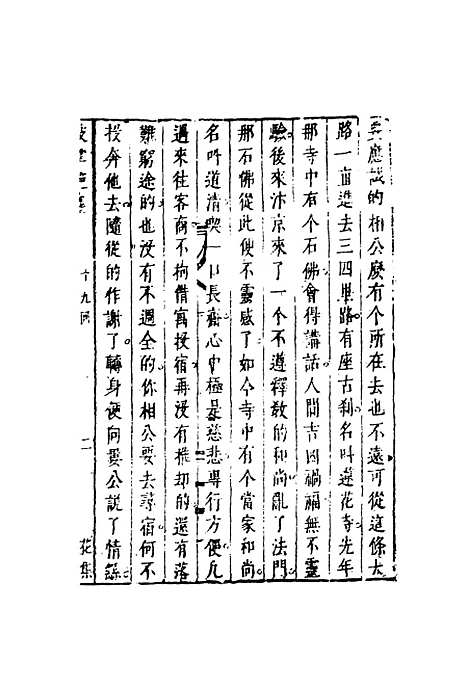 要應試的相公麼有个所在去也不遠可從這條大
路一直進去三四里路有座古刹名叫蓮花寺先年
那寺中有个石佛會得講話人間吉凶禍福無不靈
驗後來汴京來了一个不遵釋教的和尚亂了法門
那石佛從此便不靈感了如今寺中有个當家和尚
名叫道清喫一口長齋心中極是慈悲專行方便凡
過來往客商不拘借寓投宿再沒有推却的還有落
難窮途的也沒有不週全的你相公要去尋宿何不
投奔他去隨從的作謝了轉身便向婁公說了情繇
十九回
二
花集